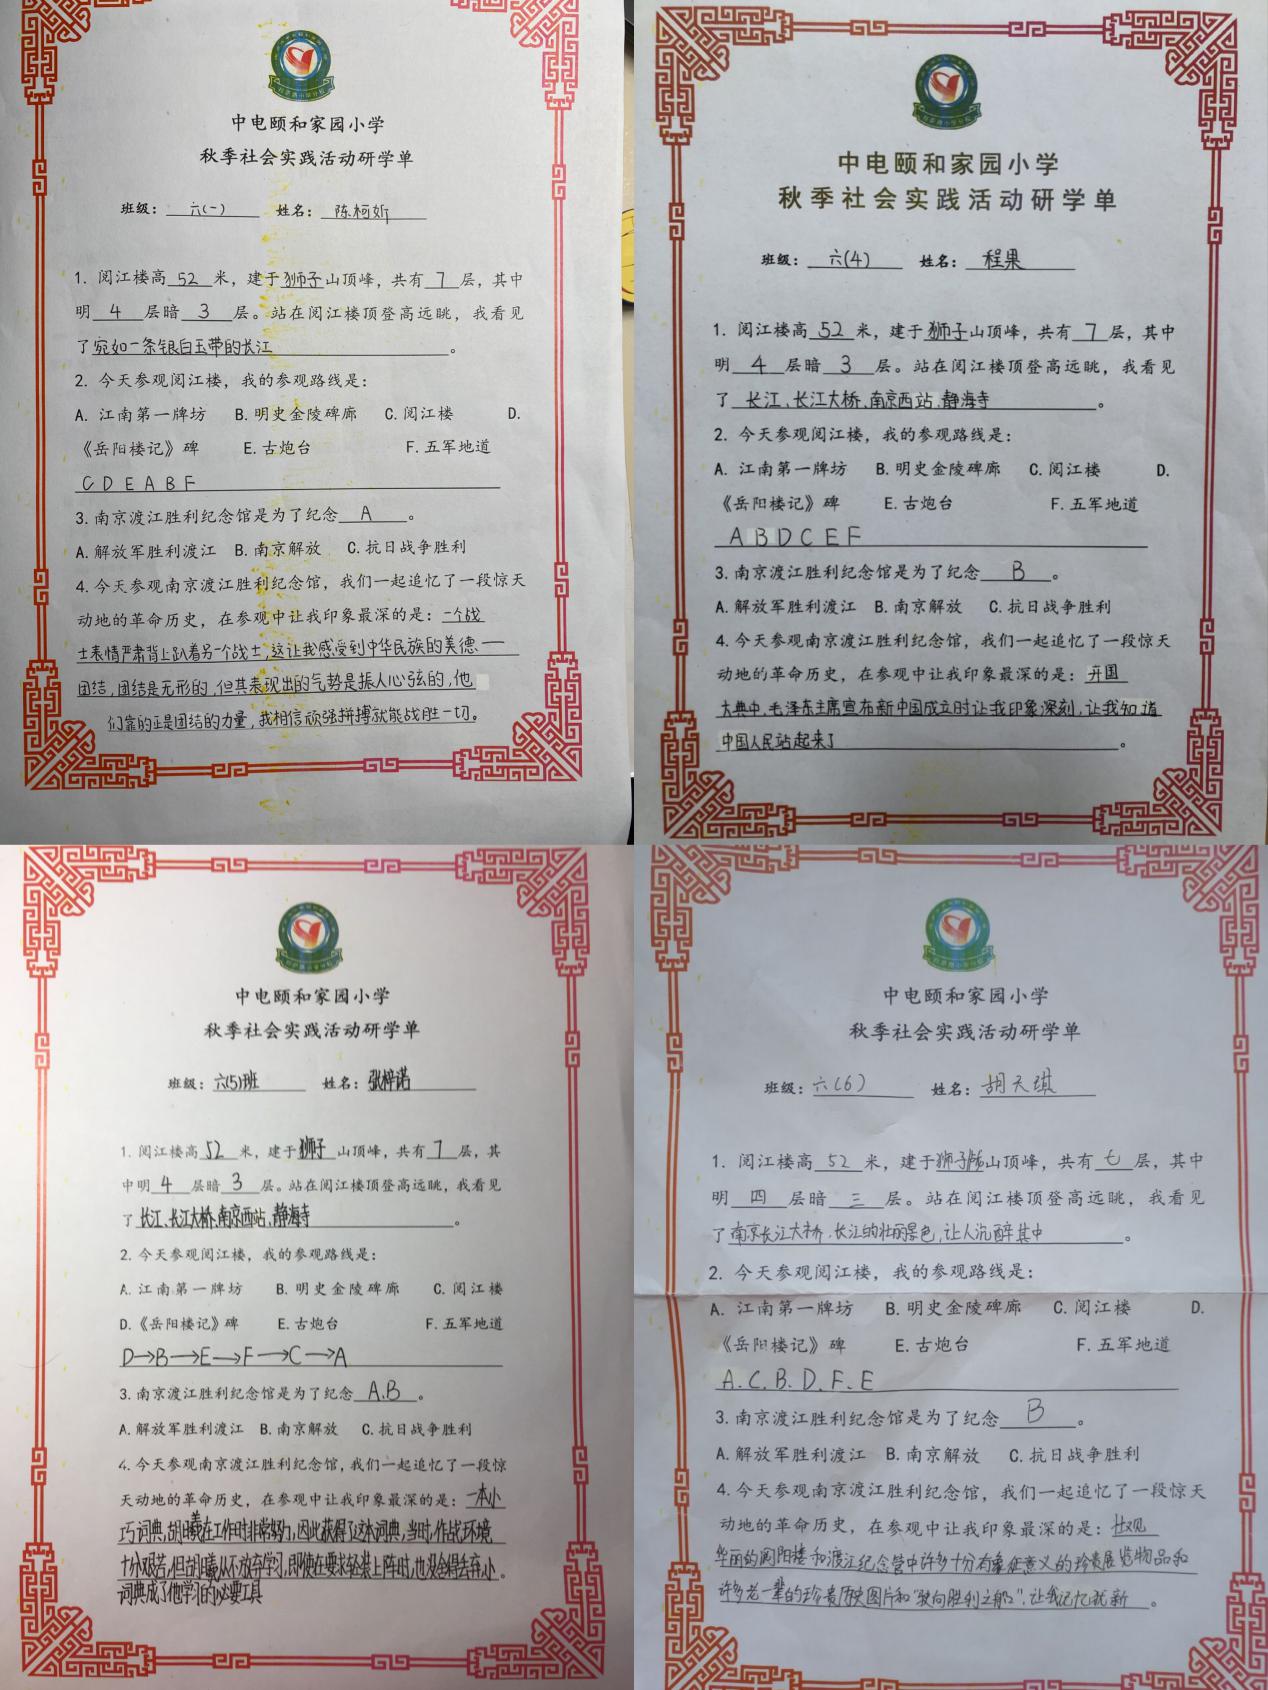 中电颐和家园小学
秋季社会实践活动研学单
班级：六(一) 姓名：陈柯妡
1. 阅江楼高 52 米，建于狮子山顶峰，共有 7 层，其中
明 4 层暗 3 层。站在阅江楼顶登高远眺，我看见
了宛如一条银白玉带的长江。
2. 今天参观阅江楼，我的参观路线是：
A. 江南第一牌坊 B. 明史金陵碑廊 C. 阅江楼 D.
《岳阳楼记》碑 E. 古炮台 F. 五军地道
C D E A B F
3. 南京渡江胜利纪念馆是为了纪念 A 。
A. 解放军胜利渡江 B. 南京解放 C. 抗日战争胜利
4. 今天参观南京渡江胜利纪念馆，我们一起追忆了一段惊天
动地的革命历史，在参观中让我印象最深的是：一个战
士表情严肃背上趴着另一个战士，这让我感受到中华民族的美德——
团结，团结是无形的，但其表现出的气势是振人心弦的，他
们靠的正是团结的力量，我相信顽强拼搏就能战胜一切。
中电颐和家园小学
秋季社会实践活动研学单
班级：六(4) 姓名：程果
1. 阅江楼高 52 米，建于狮子山顶峰，共有 7 层，其中
明 4 层暗 3 层。站在阅江楼顶登高远眺，我看见
了 长江、长江大桥、南京西站、静海寺。
2. 今天参观阅江楼，我的参观路线是：
A. 江南第一牌坊 B. 明史金陵碑廊 C. 阅江楼 D.
《岳阳楼记》碑 E. 古炮台 F. 五军地道
A B D C E F
3. 南京渡江胜利纪念馆是为了纪念 B 。
A. 解放军胜利渡江 B. 南京解放 C. 抗日战争胜利
4. 今天参观南京渡江胜利纪念馆，我们一起追忆了一段惊天
动地的革命历史，在参观中让我印象最深的是：开国
大典中，毛泽东主席宣布新中国成立时让我印象深刻，让我知道
中国人民站起来了。
中电颐和家园小学
秋季社会实践活动研学单
班级：六(5)班 姓名：张梓诺
1. 阅江楼高 52 米，建于狮子山顶峰，共有 7 层，其
中明 4 层暗 3 层。站在阅江楼顶登高远眺，我看见
了 长江、长江大桥、南京西站、静海寺。
2. 今天参观阅江楼，我的参观路线是：
A. 江南第一牌坊 B. 明史金陵碑廊 C. 阅江楼
D.《岳阳楼记》碑 E. 古炮台 F. 五军地道
D→B→E→F→C→A
3. 南京渡江胜利纪念馆是为了纪念 A.B 。
A. 解放军胜利渡江 B. 南京解放 C. 抗日战争胜利
4. 今天参观南京渡江胜利纪念馆，我们一起追忆了一段惊
天动地的革命历史，在参观中让我印象最深的是：一本小
巧词典，胡曦在工作时非常努力，因此获得了这本词典，当时，作战环境
十分艰苦，但胡曦从不放弃学习，即使在要求轻装上阵时，也没舍得丢弃，小。
词典成了他学习的必要工具
中电颐和家园小学
秋季社会实践活动研学单
班级：六(6) 姓名：胡天琪
1. 阅江楼高 52 米，建于狮子山顶峰，共有 七 层，其中
明 四 层暗 三 层。站在阅江楼顶登高远眺，我看见
了南京长江大桥，长江的壮丽景色，让人沉醉其中。
2. 今天参观阅江楼，我的参观路线是：
A. 江南第一牌坊 B. 明史金陵碑廊 C. 阅江楼 D.
《岳阳楼记》碑 E. 古炮台 F. 五军地道
A. C. B. D. F. E
3. 南京渡江胜利纪念馆是为了纪念 B 。
A. 解放军胜利渡江 B. 南京解放 C. 抗日战争胜利
4. 今天参观南京渡江胜利纪念馆，我们一起追忆了一段惊天
动地的革命历史，在参观中让我印象最深的是：壮观
华丽的阅阳楼和渡江纪念管中许多十分有象征意义的珍贵展览物品和
许多老一辈的珍贵历史图片和“驶向胜利之船”，让我记忆犹新。